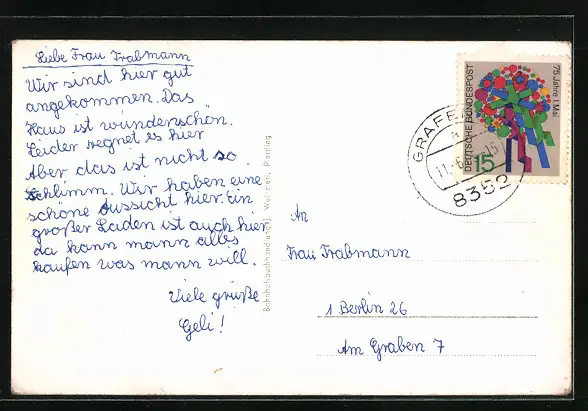 Liebe Frau Trabmann
Wir sind hier gut
angekommen. Das
Haus ist wunderschön.
Leider regnet es hier
Aber das ist nicht so
schlimm. Wir haben eine
schöne Aussicht hier. Ein
großer Laden ist auch hier
da kann mann alles
kaufen was mann will.
Viele grüße
Geli!
Bahnhofsbuchhandlung Plattling
75 Jahre 1. Mai
DEUTSCHE BUNDESPOST
15
GRAFE
11.-6.
-15
8352
An
Frau Trabmann
1 Berlin 26
Am Graben 7